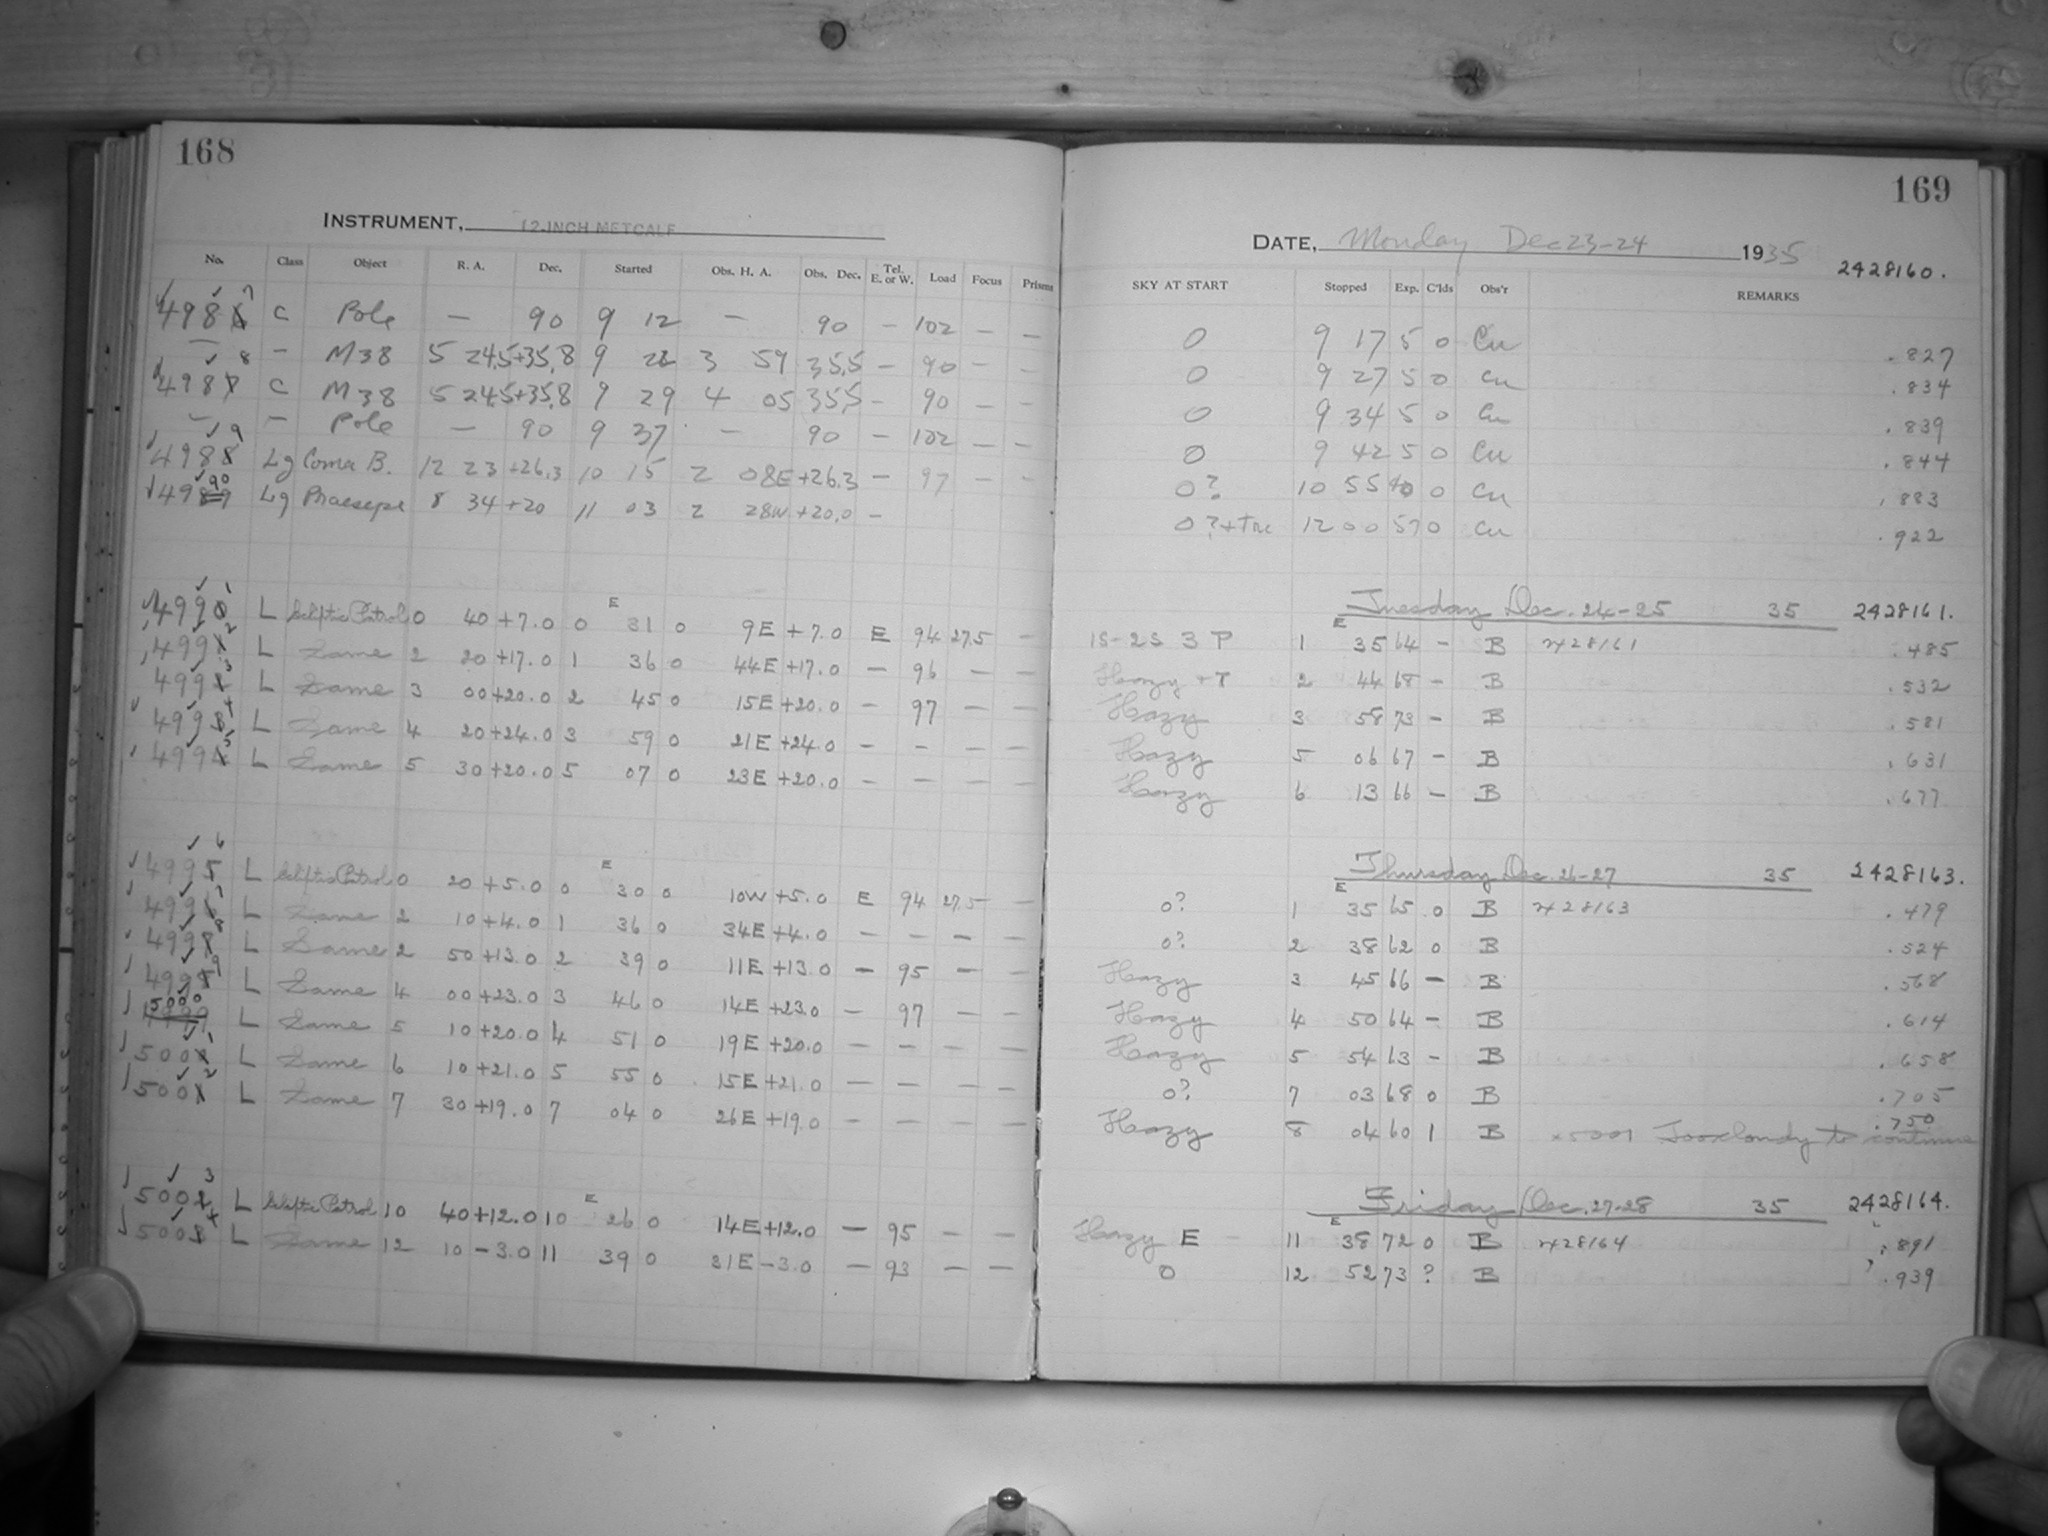 168
INSTRUMENT, 12-INCH METCALF
No. Class Object R. A. Dec. Started Obs. H. A. Obs. Dec. Tel. E. or W. Load Focus Prisms
7
498 C Pole — 90 9 12 — 90 — 102 — —
— — M38 5 24.5 +35.8 9 22 3 59 35.5 — 90 — —
8
498 C M38 5 24.5 +35.8 9 29 4 05 35.5 — 90 — —
— — Pole — 90 9 37 — 90 — 102 — —
9
4988 Lg Coma B. 12 23 +26.3 10 15 2 08E +26.3 — 97 — —
90
4989 Lg Praesepe 8 34 +20 11 03 2 28W +20.0 —
1
4990 L Ecliptic Patrol 0 40 +7.0 0 E 31 0 9E +7.0 E 94 27.5 —
2
4991 L Same 2 20 +17.0 1 36 0 44E +17.0 — 96 — —
3
4992 L Same 3 00 +20.0 2 45 0 15E +20.0 — 97 — —
4
4993 L Same 4 20 +24.0 3 59 0 21E +24.0 — — — —
5
4994 L Same 5 30 +20.0 5 07 0 23E +20.0 — — — —
6
4995 L Ecliptic Patrol 0 20 +5.0 0 E 30 0 10W +5.0 E 94 27.5 —
7
4996 L Same 2 10 +4.0 1 36 0 34E +4.0 — — — —
8
499 L Same 2 50 +13.0 2 39 0 11E +13.0 — 95 — —
9
4998 L Same 4 00 +23.0 3 46 0 14E +23.0 — 97 — —
5000
4999 L Same 5 10 +20.0 4 51 0 19E +20.0 — — — —
1
500 L Same 6 10 +21.0 5 55 0 15E +21.0 — — — —
2
5001 L Same 7 30 +19.0 7 04 0 26E +19.0 — — — —
3
5002 L Ecliptic Patrol 10 40 +12.0 10 E 26 0 14E +12.0 — 95 — —
4
5003 L Same 12 10 -3.0 11 39 0 31E -3.0 — 93 — —
169
DATE, Monday Dec 23-24 1935 2428160.
SKY AT START Stopped Exp. C'lds Obs'r REMARKS
0 9 17 5 0 Cu .827
0 9 27 5 0 Cu .834
0 9 34 5 0 Cu .839
0 9 42 5 0 Cu .844
0? 10 55 40 0 Cu .883
0? + Tree 12 00 57 0 Cu .922
Tuesday Dec. 24-25 35 2428161.
1S-2S 3 P 1 E 35 64 — B 2428161 .485
Hazy + T 2 44 68 — B .532
Hazy 3 58 73 — B .581
Hazy 5 06 67 — B .631
Hazy 6 13 66 — B .677
Thursday Dec. 26-27 35 2428163.
0? 1 E 35 65 0 B 2428163 .479
0? 2 38 62 0 B .524
Hazy 3 45 66 — B .568
Hazy 4 50 64 — B .614
Hazy 5 54 63 — B .658
0? 7 03 68 0 B .705
Hazy 8 04 60 1 B x5001 Too cloudy to continue .750
Friday Dec. 27-28 35 2428164.
Hazy E 11 E 38 72 0 B 2428164 .891
0 12 52 73 ? B .939